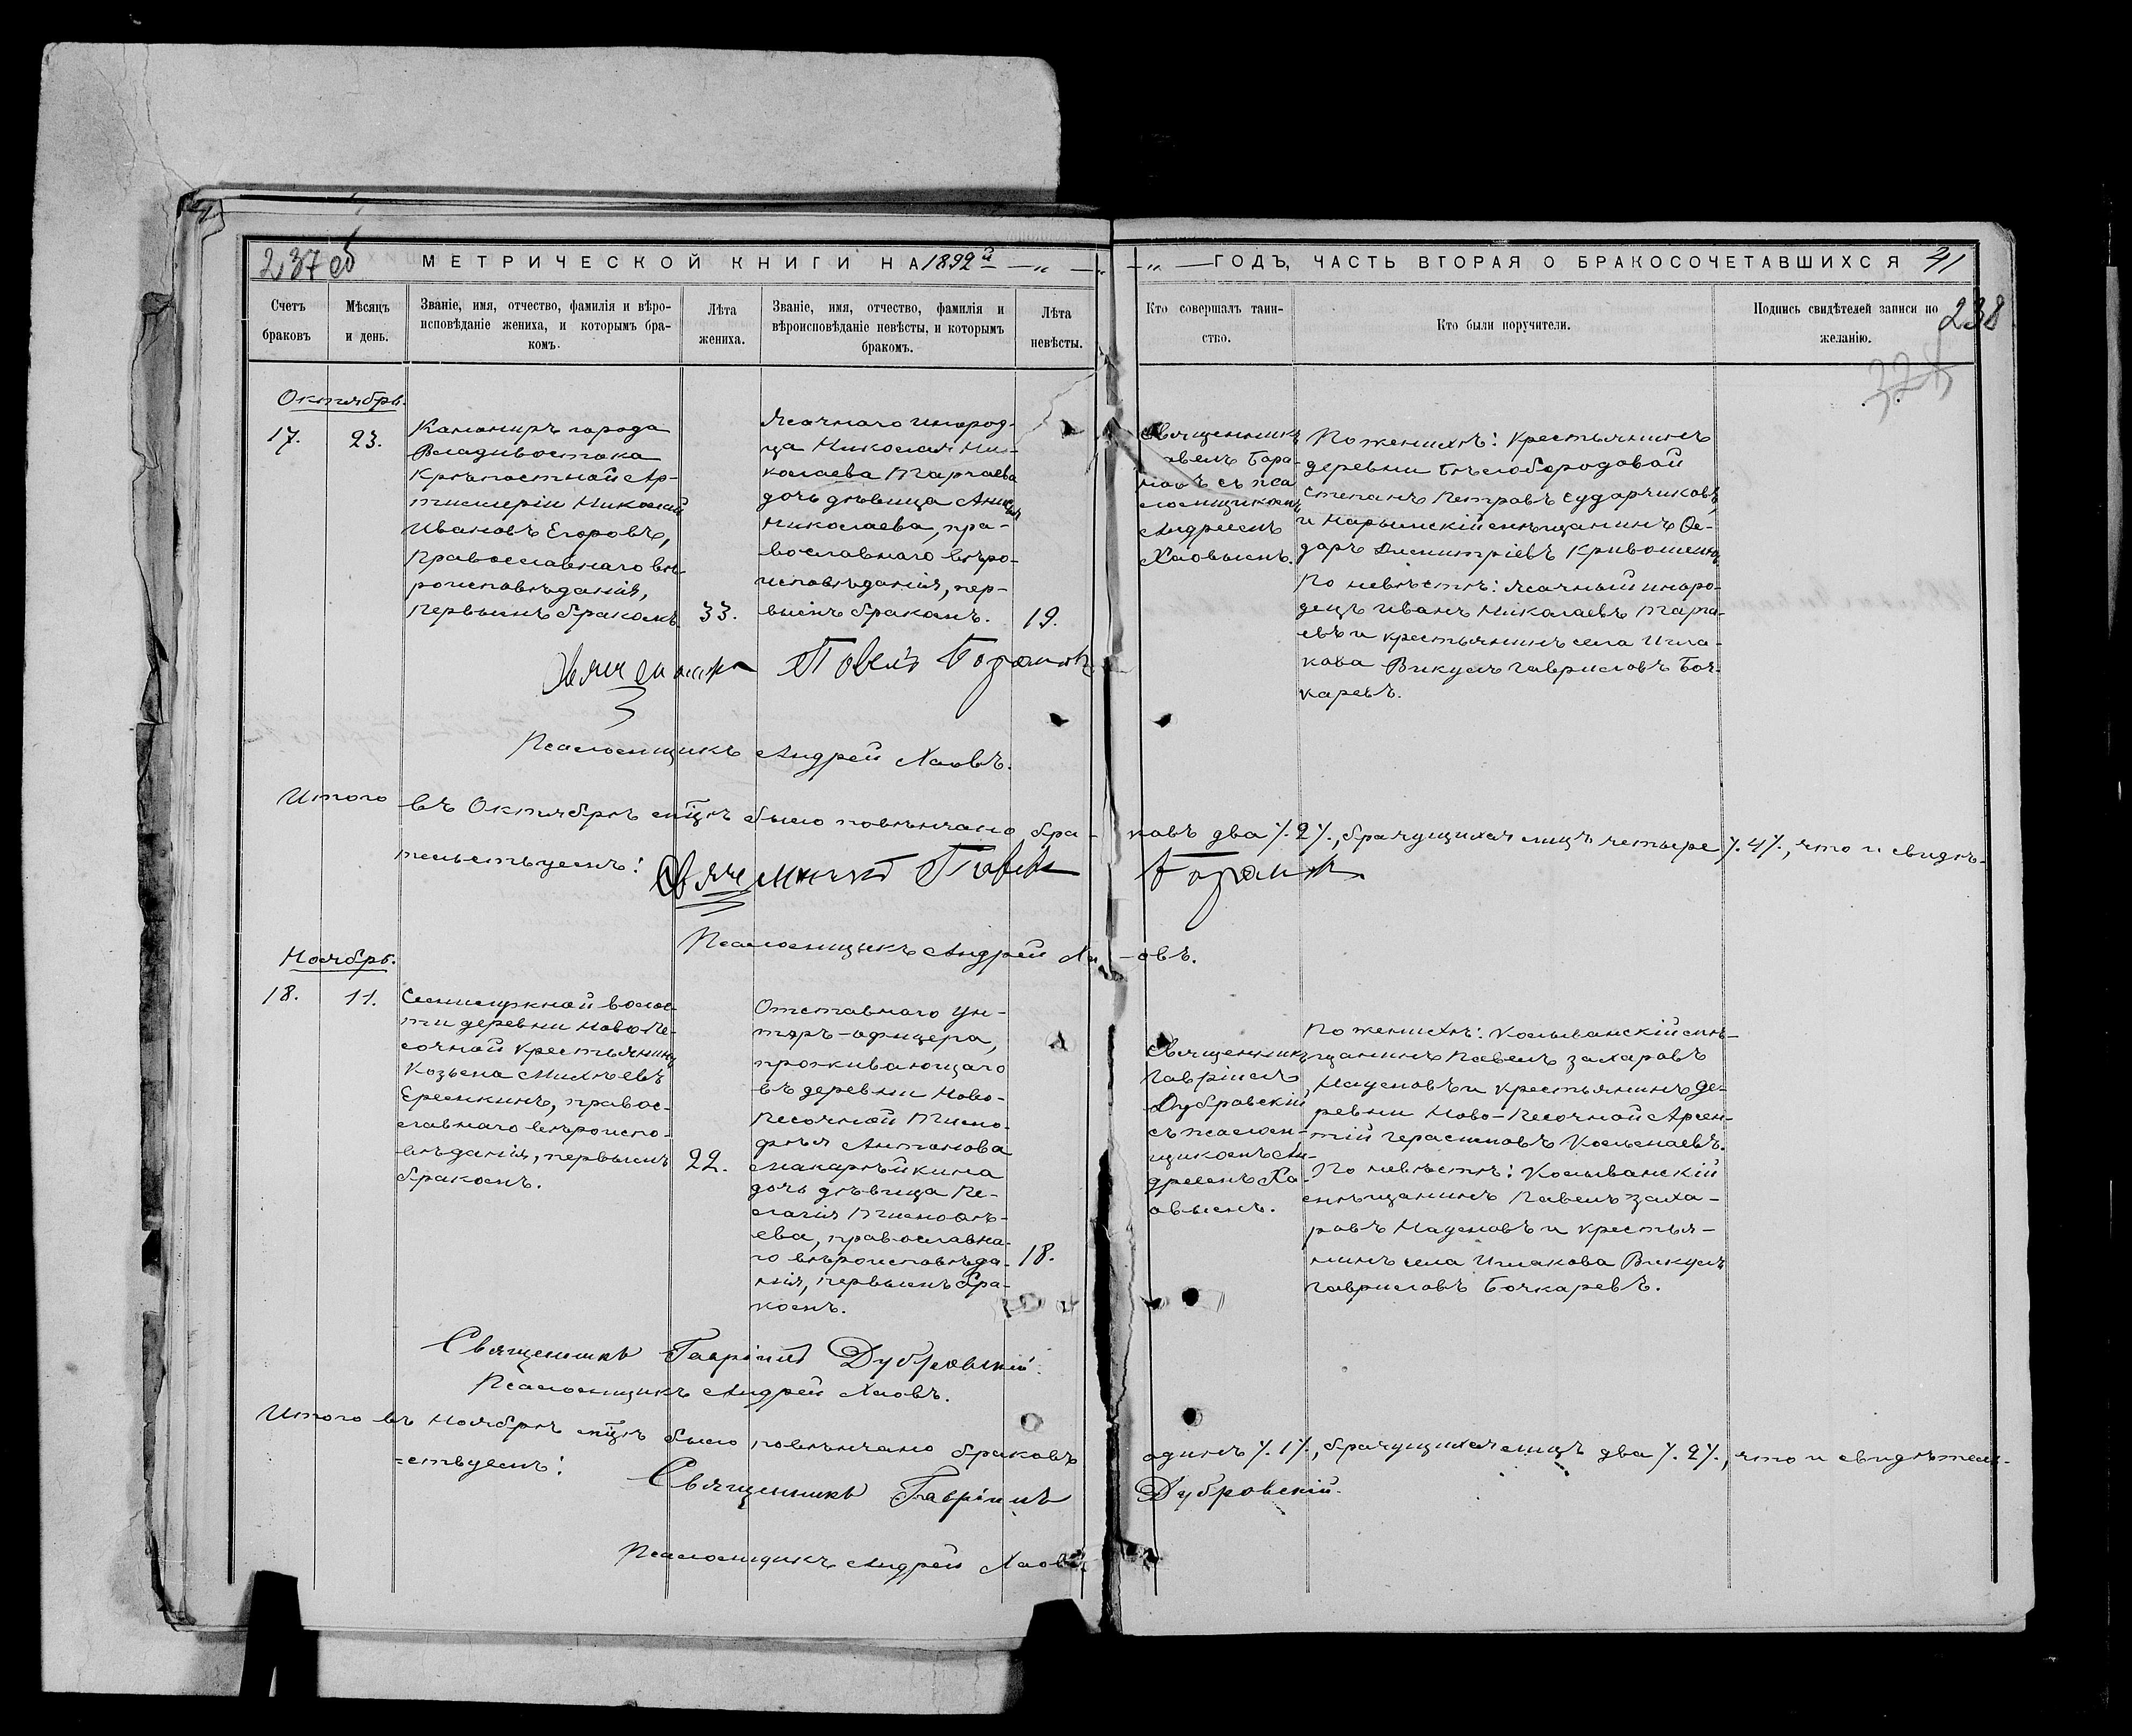 237 об
МЕТРИЧЕСКОЙ КНИГИ НА 1892й
ГОДЪ, ЧАСТЬ ВТОРАЯ О БРАКОСОЧЕТАВШИХСЯ 41
238
Счетъ браковъ
Мѣсяцъ и день.
Званіе, имя, отчество, фамилія и вѣро-
исповѣданіе жениха, и которымъ бра-
комъ.
Лѣта жениха.
Званіе, имя, отчество, фамилія и
вѣроисповѣданіе невѣсты, и которымъ
бракомъ.
Лѣта невѣсты.
Кто совершалъ таин-
ство.
Кто были поручители.
Подпись свидѣтелей записи по
желанію.
Октябрь.
17.
23.
Канониръ города
Владивостока
Крѣпостной Ар-
тиллеріи Николай
Ивановъ Егоровъ,
Православнаго вѣ-
роисповѣданія,
первымъ бракомъ.
33.
Ясачнаго инород-
ца Николая Ни-
колаева
дочь дѣвица
Николаева, пра-
вославнаго вѣро-
исповѣданія, пер-
вымъ бракомъ.
19.
Священникъ
Павелъ Бара-
новъ съ пса
ломщикомъ
Андреемъ
Хаовымъ.
По женихѣ: крестьянинъ
деревни Бѣлобородовой
Степанъ Петровъ Сударчиковъ,
и Нарымскій мѣщанинъ Ѳе-
доръ Димитріевъ
По невѣстѣ: ясачный иноро-
децъ Иванъ Николаевъ
евъ и крестьянинъ села Игла-
кова Викулъ Гавриловъ Боч-
каревъ.
Священникъ Павелъ Барановъ
Псаломщикъ Андрей Хаовъ.
Итого въ Октябрѣ мцѣ было повѣнчано бра-
ковъ два /.2/., брачущихся лицъ четыре /.4/., что и свидѣ-
тельствуемъ: Священникъ Павелъ Барановъ
Псаломщикъ Андрей Ха-овъ.
Ноябрь.
18.
11.
Семилужной волос-
ти деревни Ново-Пе-
сочной крестьянинъ
Козьма Михѣевъ
Еремкинъ, правос-
лавнаго вѣроиспо-
вѣданія, первымъ
бракомъ.
22.
Отставнаго Ун-
теръ-офицера,
проживающаго
въ деревни Ново-
Песочной Тимо-
фѣя Антонова
Макарѣйкина
дочь дѣвица Пе-
лагія Тимофѣ-
ева, православна-
го вѣроисповѣда-
нія, первымъ бра-
комъ.
18.
Священникъ
Гавріилъ
Дубровскій
съ псалом-
щикомъ Ан-
дреемъ Ха-
овымъ.
По женихѣ: Колыванскій мѣ-
щанинъ Павелъ Захаровъ
Наумовъ и крестьянинъ де-
ревни Ново-Песочной Арсен-
тій Герасимовъ
По невѣстѣ: Колыванскій
мѣщанинъ Павелъ Заха-
ровъ Наумовъ и крестья-
нинъ села Иглакова Викулъ
Гавриловъ Бочкаревъ.
Священникъ Гавріилъ Дубровскій.
Псаломщикъ Андрей Хаовъ.
Итого въ Ноябрѣ мцѣ было повѣнчано браковъ
одинъ /.1/., брачущихся лицъ два /.2/., что и свидѣтель-
=ствуемъ: Священникъ Гавріилъ Дубровскій.
Псаломщикъ Андрей Хаовъ